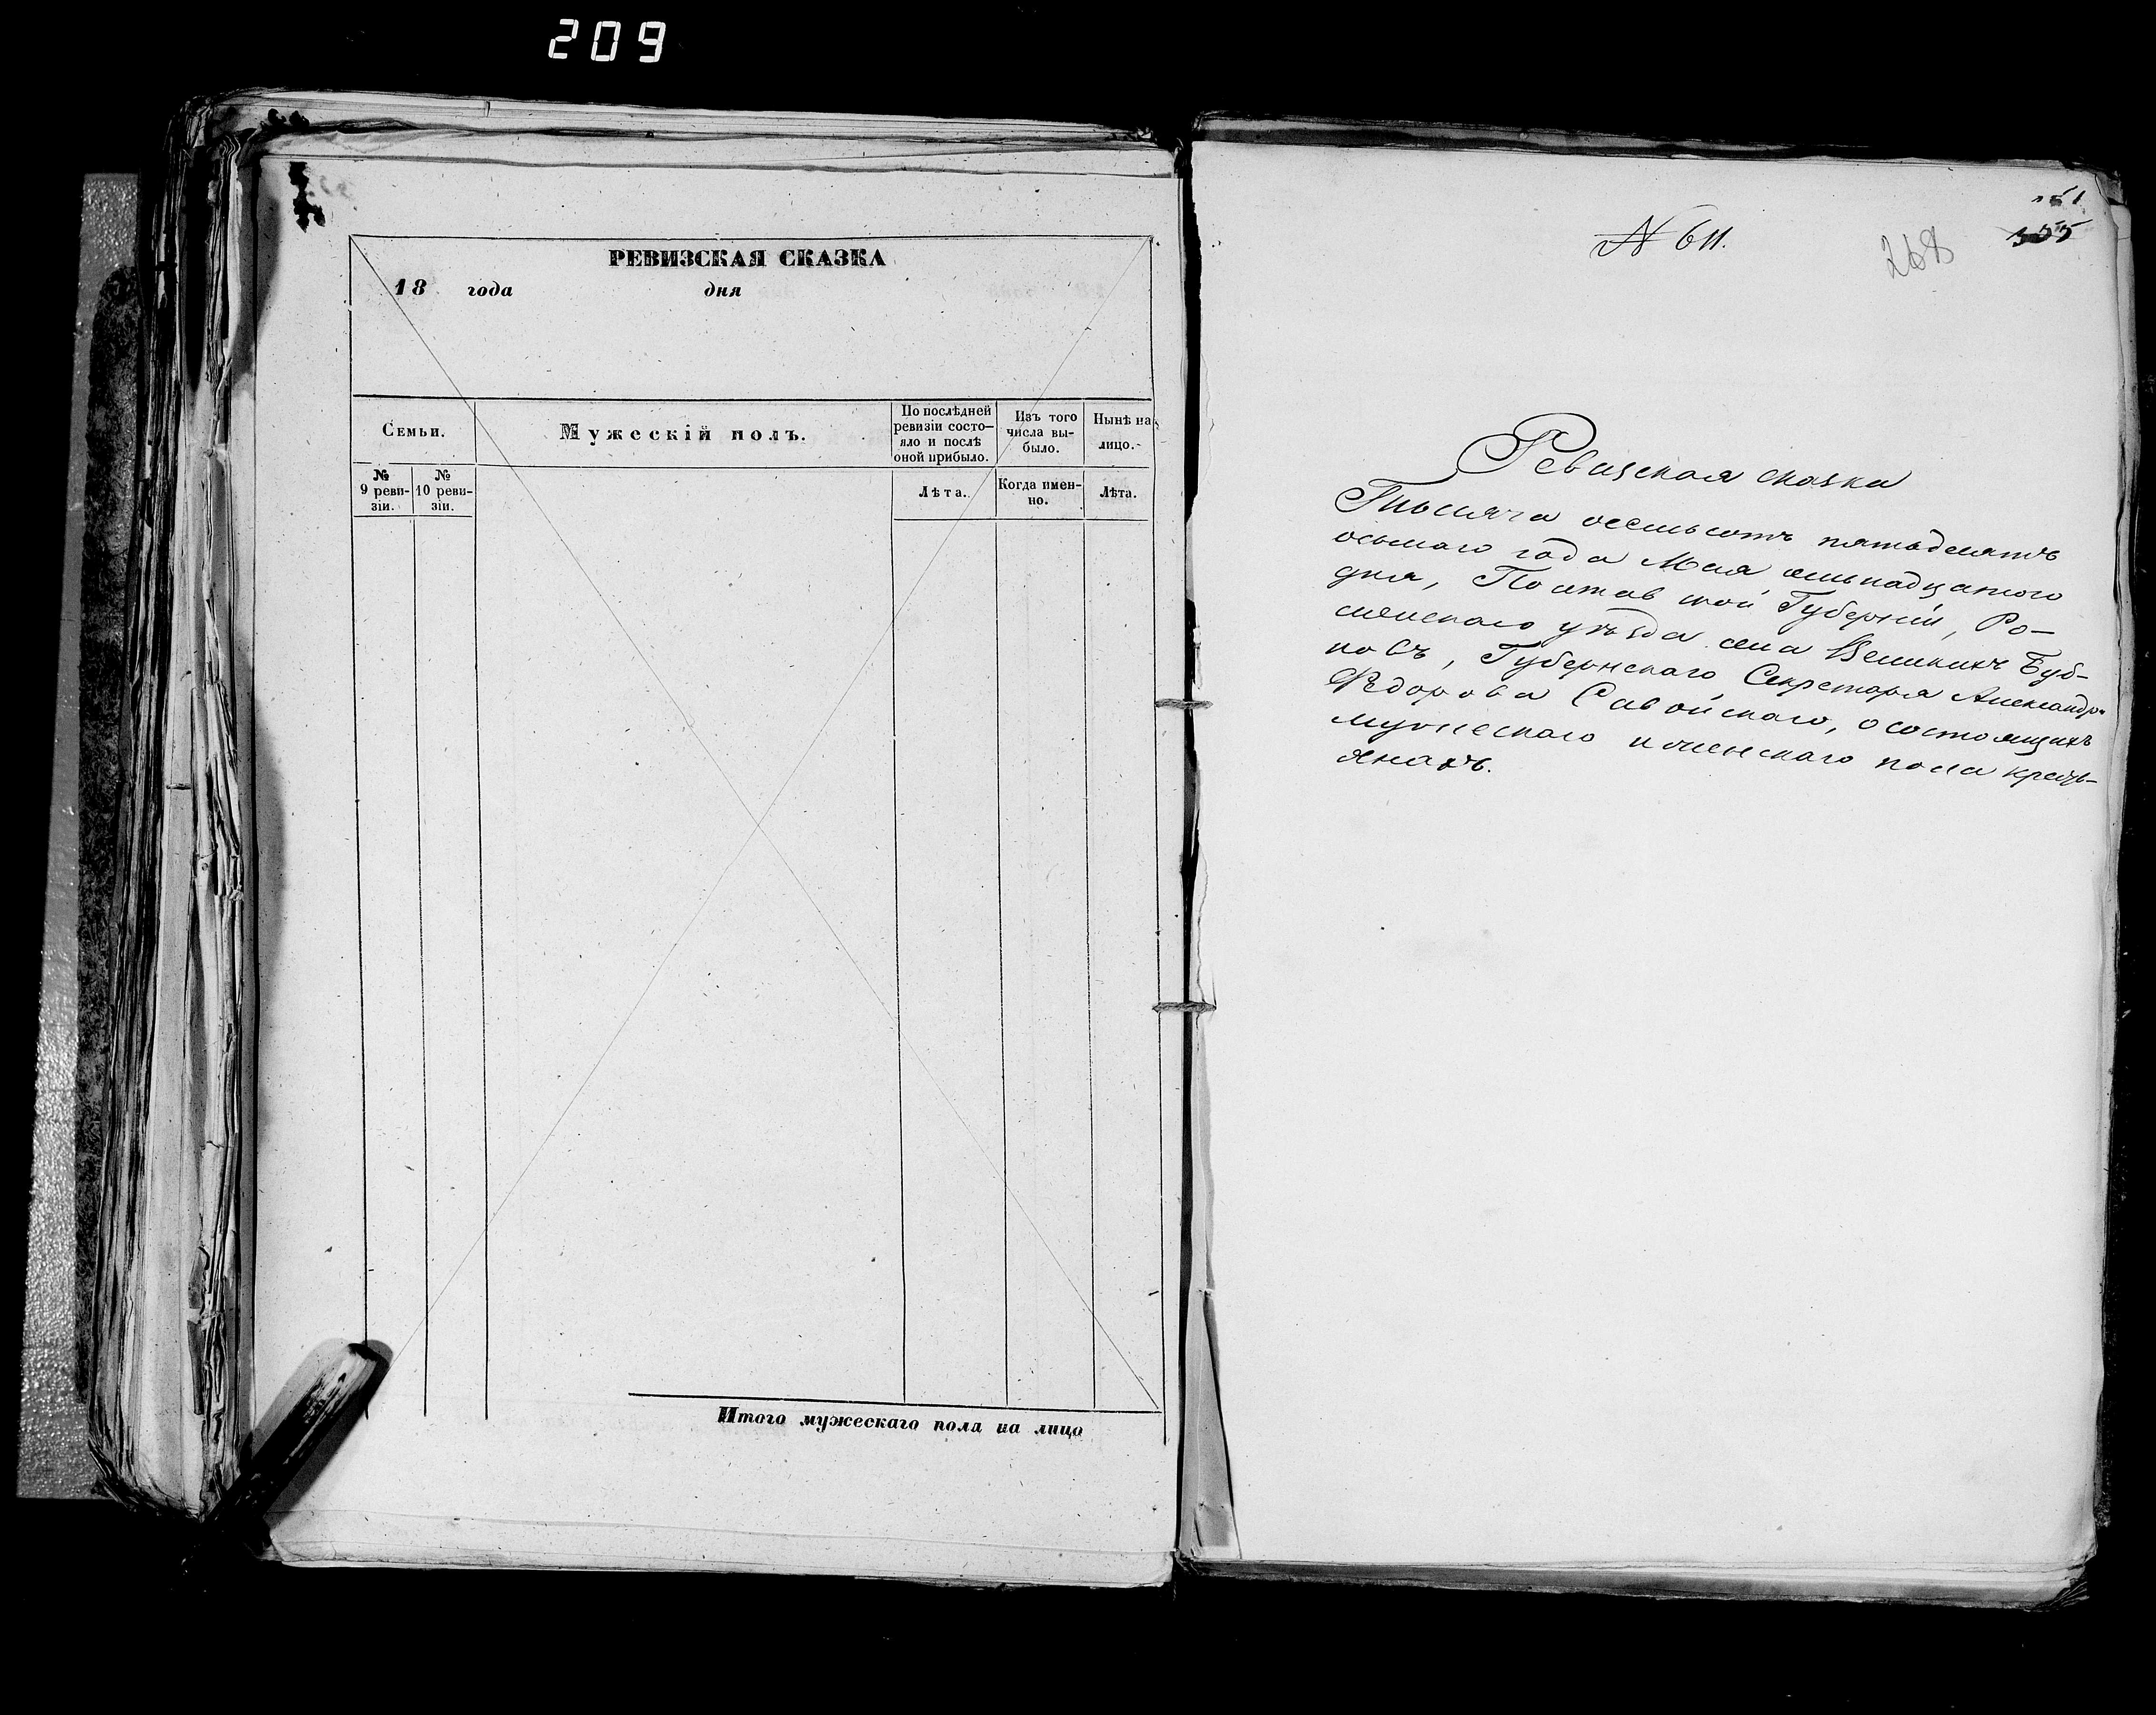 209
РЕВИЗСКАЯ СКАЗКА
18 года дня
Семьи.
Мужескій полъ.
По послѣдней
ревизіи состо-
яло и послѣ
оной прибыло.
Изъ того
числа вы-
было.
Нынѣ на
лицо.
№
9 реви-
зіи.
№
10 реви-
зіи.
Лѣта.
Когда имен-
но.
Лѣта.
Итого мужескаго пола на лицо
№ 611.
268
Ревизская сказка
Тысяча восемьсотъ пятьдесятъ
осьмаго года Мая
дня, Полтавской Губерніи, Ро-
менскаго уѣзда села Великихъ Буб-
новъ, Губернскаго Секретаря Александра
Ѳедорова Савойскаго, о состоящихъ
мужескаго и женскаго пола кресть-
янахъ.